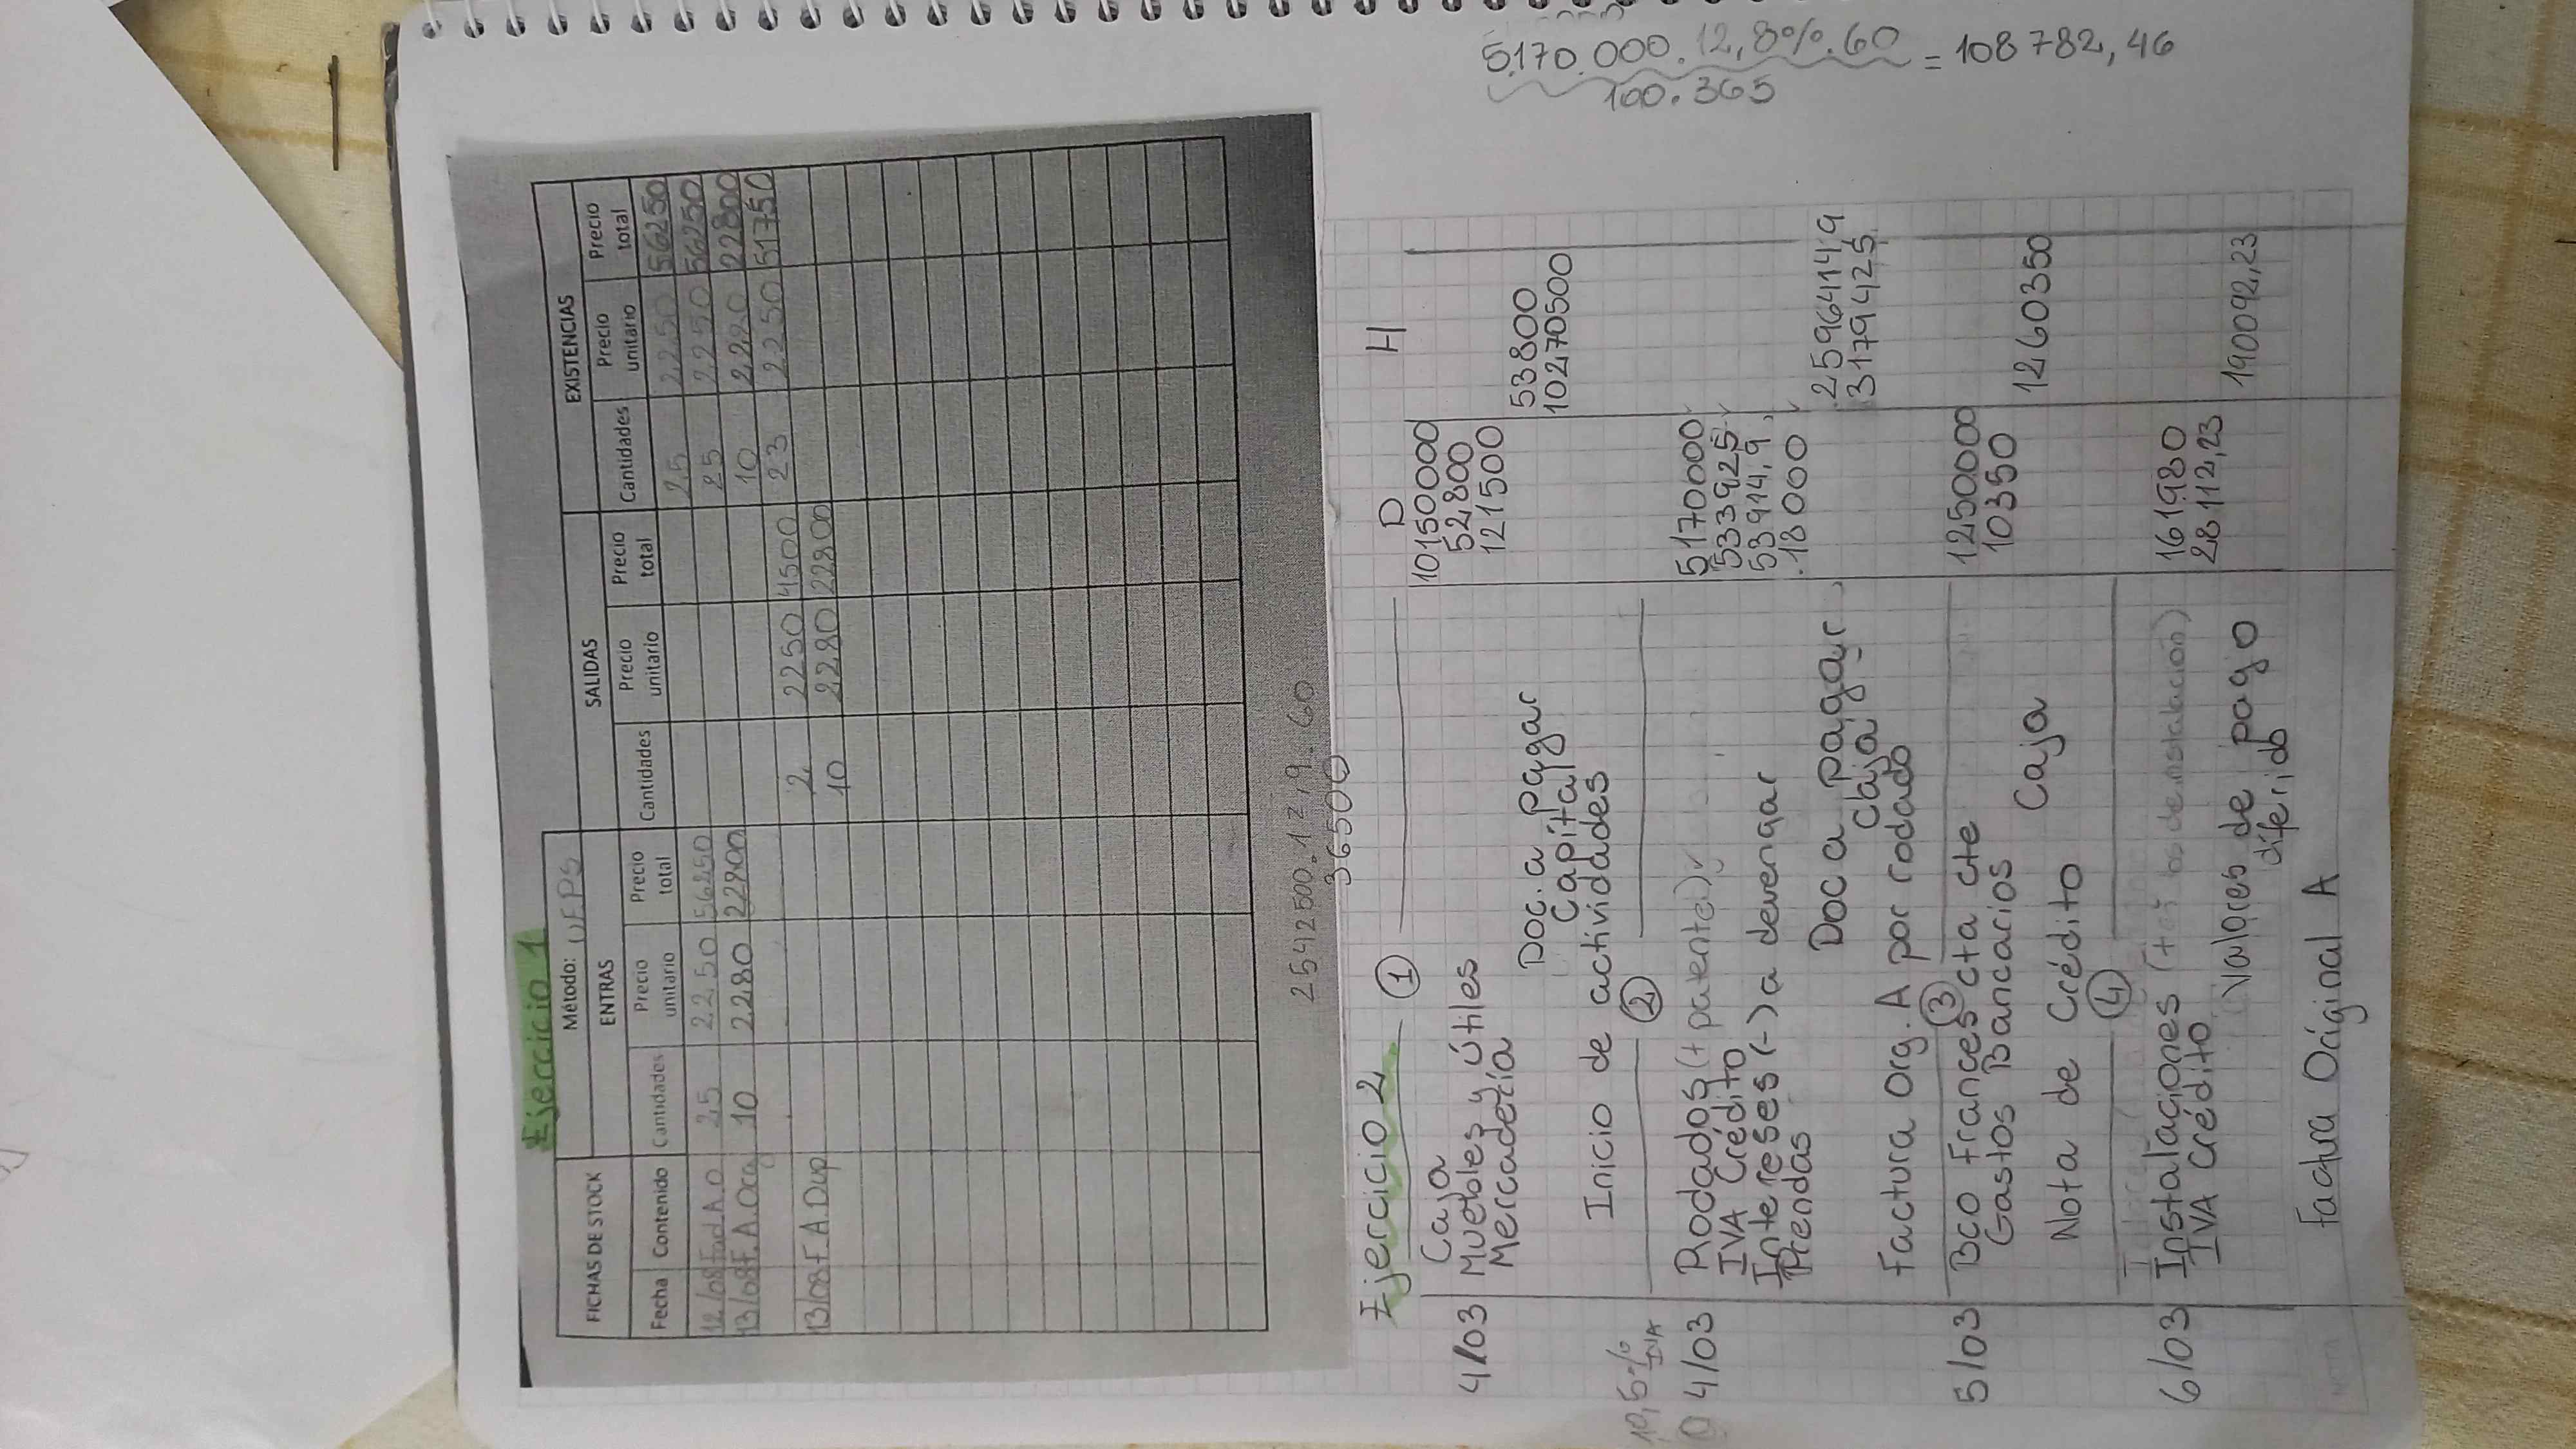 5.170.000.12,8%.60 = 108782,46
100.365
Ejercicio 1
FICHAS DE STOCK Método: UEPS
ENTRAS SALIDAS EXISTENCIAS
Fecha Contenido Cantidades Precio unitario Precio total Cantidades Precio unitario Precio total Cantidades Precio unitario Precio total
12/08 25 22.50 56250 25 2250 56250
13/08 F.A.Org 10 2280 22800 25 2250 56250
10 2280 22800
13/08 F.A.Dup 2 2250 4500 23 2250 51750
10 2280 22800
2542500.12,9.60
36500
Ejercicio 2 ① D H
4/03 Caja 10150000
Muebles y Útiles 52800
Mercadería 121500
Doc. a Pagar 53800
Capital 10270500
Inicio de actividades
10,5% IVA ②
4/03 Rodados (+ patenta) 5170000
IVA Crédito 533925
Intereses (-) a devengar 53914,9
Prendas 18000
Doc a pagar 2596414,9
Caja 3179425
Factura Org. A por rodado
③
5/03 Bco Frances cta cte 1250000
Gastos Bancarios 10350
Caja 1260350
Nota de Crédito
④
6/03 Instalaciones 161980
IVA Crédito 28112,23
Valores de pago diferido 190092,23
Factura Original A